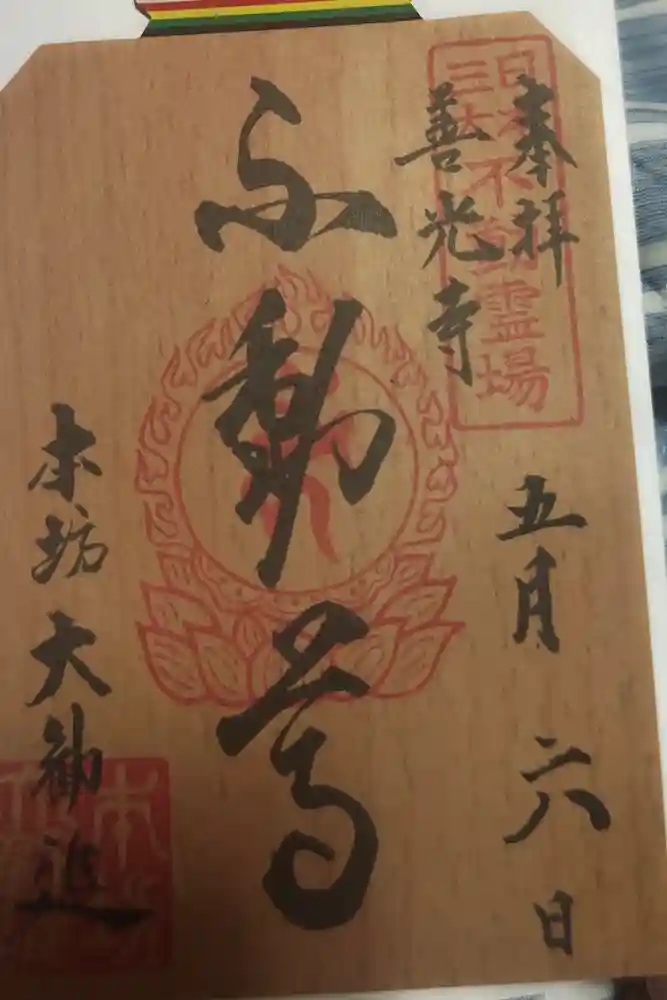 奉拝
善光寺
日本
三大不動霊場
五月六日
不動尊
本坊大勧進